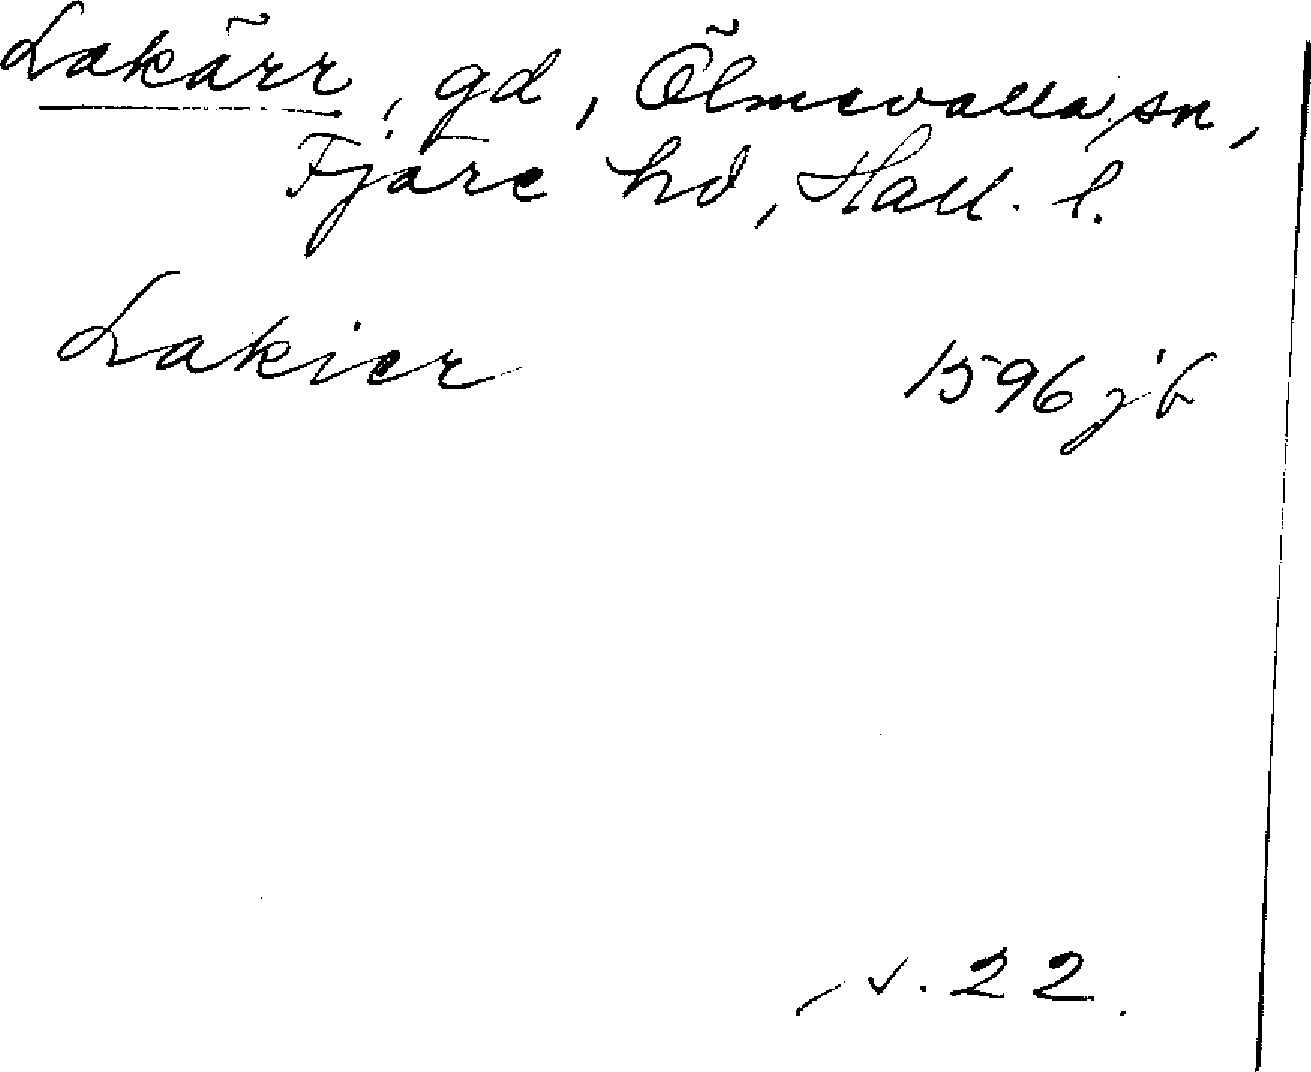 Lakärr, gd, Ölmevalla sn,
Fjäre hd, Hall. l.
Lakier 1596 jb
s. 22.